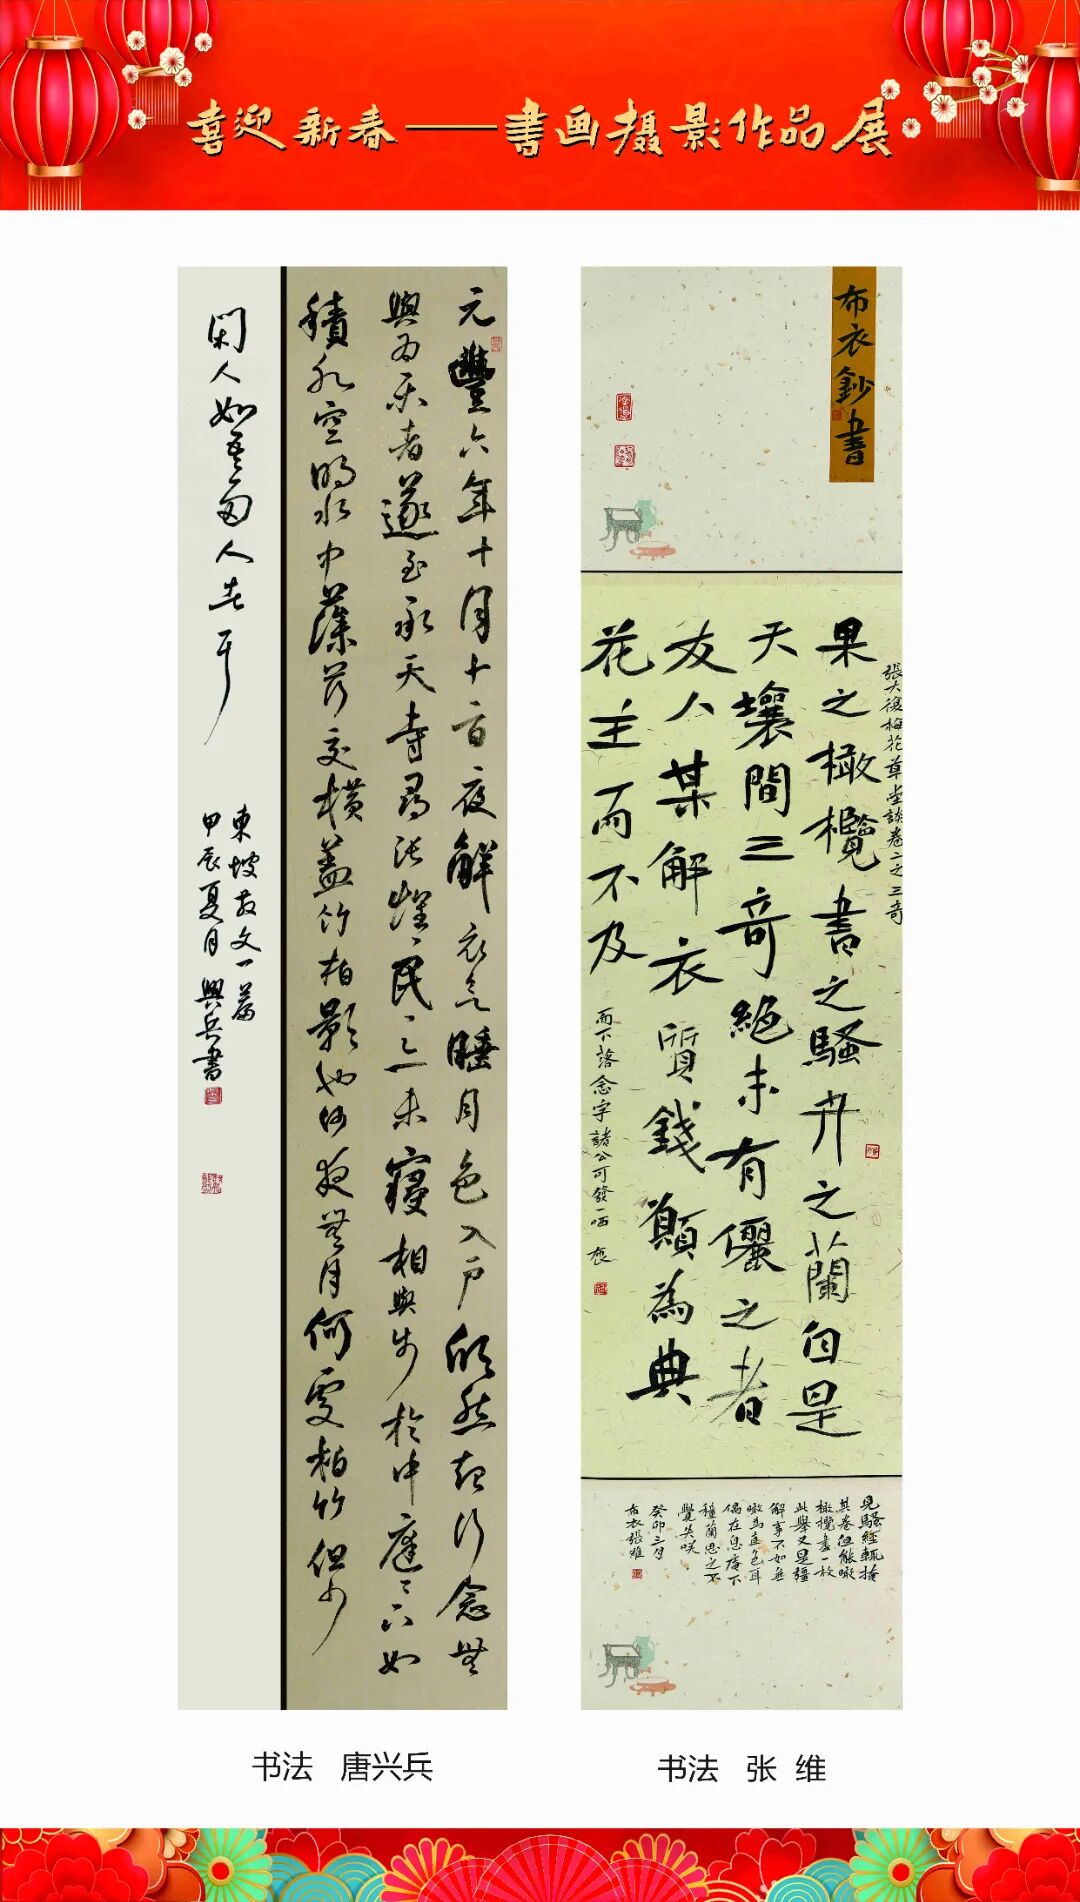 喜迎新春——书画摄影作品展
元豐六年十月十二日夜解衣欲睡月色入户欣然起行念無
與為樂者遂至承天寺尋張懷民〻亦未寢相與步於中庭〻下如
積水空明水中藻荇交橫蓋竹柏影也何夜無月何處柏竹但少
閑人如吾兩人者耳
東坡散文一篇
甲辰夏月興兵書
布衣鈔書
張大復梅花草堂談卷二之三奇
果之橄欖書之騷卉之蘭自是
天壤間三奇絕未有儷之者
友人某解衣質錢顛為典
花主而不及
而下落念字諸公可發一哂
見騷經輒掩
其卷但能啖
橄欖盡一枚
此舉又是強
解事不如無
偶在息庵下
種蘭思之不
覺失咲
癸卯三月
布衣張維
书法 唐兴兵
书法 张 维